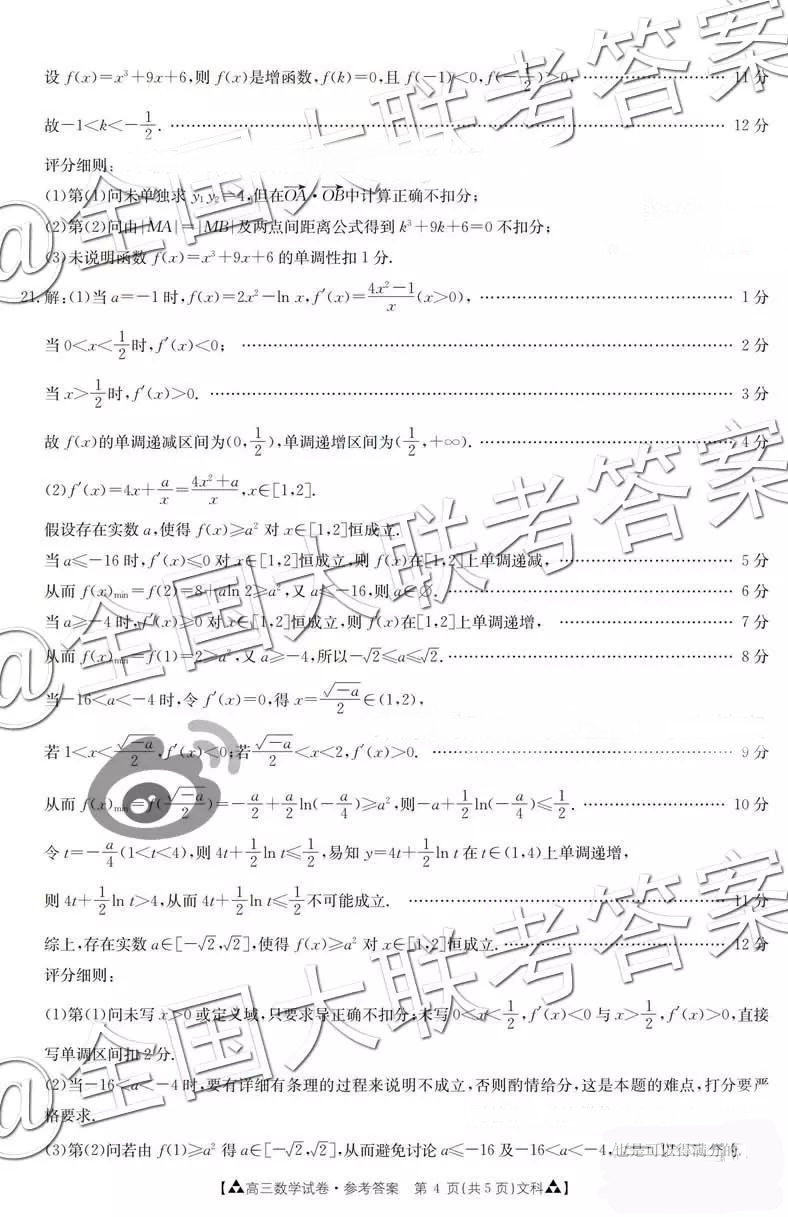 设 f(x)=x³+9x+6,则 f(x)是增函数,f(k)=0,且 f(-1)<0,f(-1/2)>0, …… 11 分
故-1<k<-1/2. …… 12 分
评分细则:
(1)第(1)问未单独求 y₁y₂=4,但在OA·OB中计算正确不扣分;
(2)第(2)问由|MA|=|MB|及两点间距离公式得到 k³+9k+6=0 不扣分;
(3)未说明函数 f(x)=x³+9x+6 的单调性扣 1 分.
21.解:(1)当 a=-1 时,f(x)=2x²-ln x,f′(x)=(4x²-1)/x(x>0), …… 1 分
当 0<x<1/2时,f′(x)<0; …… 2 分
当 x>1/2时,f′(x)>0. …… 3 分
故 f(x)的单调递减区间为(0,1/2),单调递增区间为(1/2,+∞). …… 4 分
(2)f′(x)=4x+a/x=(4x²+a)/x,x∈[1,2].
假设存在实数 a,使得 f(x)≥a² 对 x∈[1,2]恒成立.
当 a≤-16 时,f′(x)≤0 对 x∈[1,2]恒成立,则 f(x)在[1,2]上单调递减, …… 5 分
从而 f(x)min=f(2)=8+aln 2≥a²,又 a≤-16,则 a∈∅. …… 6 分
当 a≥-4 时,f′(x)≥0 对 x∈[1,2]恒成立,则 f(x)在[1,2]上单调递增, …… 7 分
从而 f(x)min=f(1)=2≥a²,又 a≥-4,所以-√2≤a≤√2. …… 8 分
当-16<a<-4 时,令 f′(x)=0,得 x=√(-a)/2∈(1,2),
若 1<x<√(-a)/2,f′(x)<0;若√(-a)/2<x<2,f′(x)>0. …… 9 分
从而 f(x)min=f(√(-a)/2)=-a/2+a/2 ln(-a/4)≥a²,则-a+1/2 ln(-a/4)≤1/2. …… 10 分
令 t=-a/4(1<t<4),则 4t+1/2 ln t≤1/2,易知 y=4t+1/2 ln t 在 t∈(1,4)上单调递增,
则 4t+1/2 ln t>4,从而 4t+1/2 ln t≤1/2不可能成立. …… 11 分
综上,存在实数 a∈[-√2,√2],使得 f(x)≥a² 对 x∈[1,2]恒成立. …… 12 分
评分细则:
(1)第(1)问未写 x>0 或定义域,只要求导正确不扣分;未写 0<x<1/2,f′(x)<0 与 x>1/2,f′(x)>0,直接
写单调区间扣 2 分.
(2)当-16<a<-4 时,要有详细有条理的过程来说明不成立,否则酌情给分,这是本题的难点,打分要严
格要求.
(3)第(2)问若由 f(1)≥a² 得 a∈[-√2,√2],从而避免讨论 a≤-16 及-16<a<-4,也是可以得满分的.
【高三数学试卷·参考答案 第 4 页(共 5 页)文科】
@全国大联考答案
@全国大联考答案
@全国大联考答案